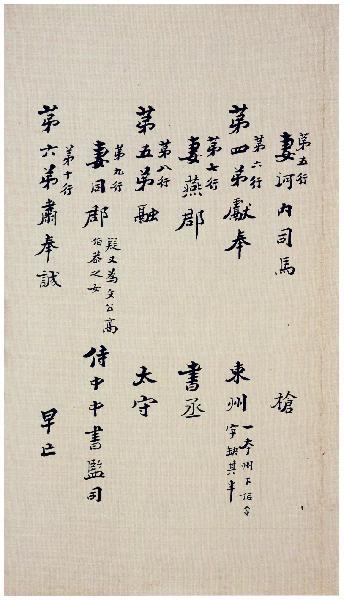 第五行
妻河内司馬
槍
第六行
第四弟獻奉
東州
一本州下
字缺其半
第七行
妻燕郡
書丞
第八行
第五弟融
太守
第九行
妻同郡
疑又為文公高
伯恭之女
侍中中書監司
第十行
第六弟肅奉誠
早亡